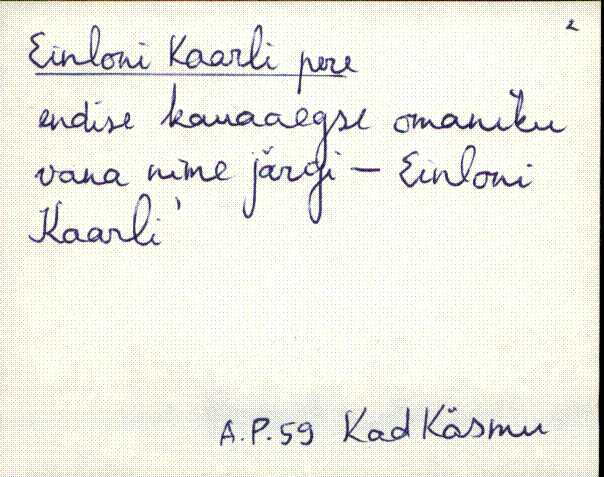 2
Einloni Kaarli pere
endise kauaaegse omaniku
vana nime järgi – Einloni
Kaarli'
A.P.59 Kad Käsmu